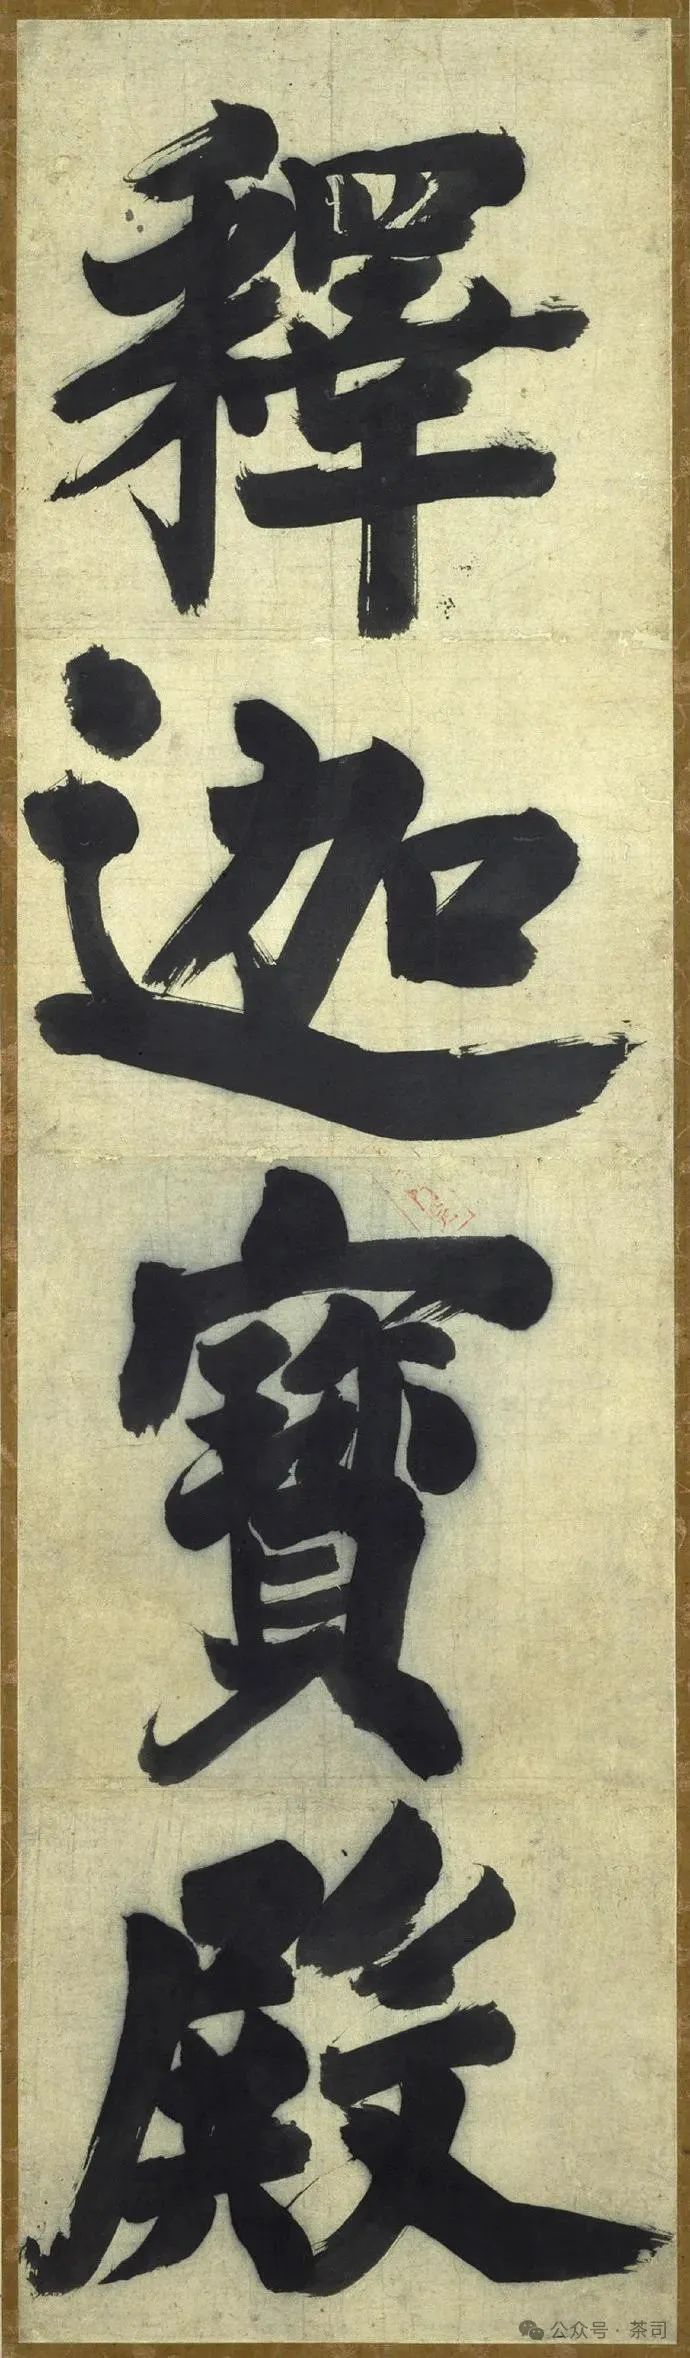 釋迦寶殿
公众号·茶司